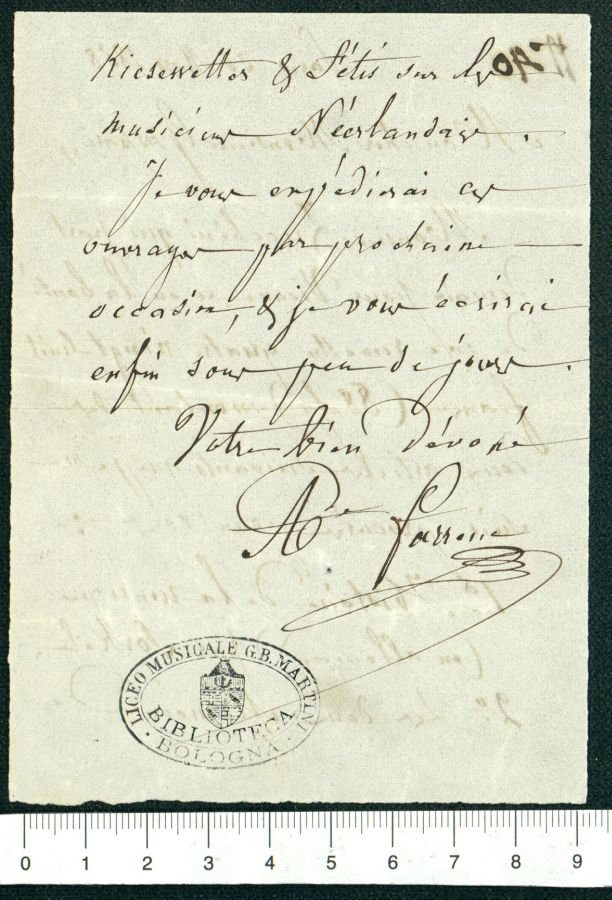 Kiesewetter & Fétis sur les
musiciens Néerlandais.
Je vous expédierai ces
ouvrages par prochaine
occasion, & je vous écrirai
enfin sous peu de jours.
Votre bien dévoué
A. Farrenc
LICEO MUSICALE G.B. MARTINI
BIBLIOTECA
BOLOGNA
0 1 2 3 4 5 6 7 8 9